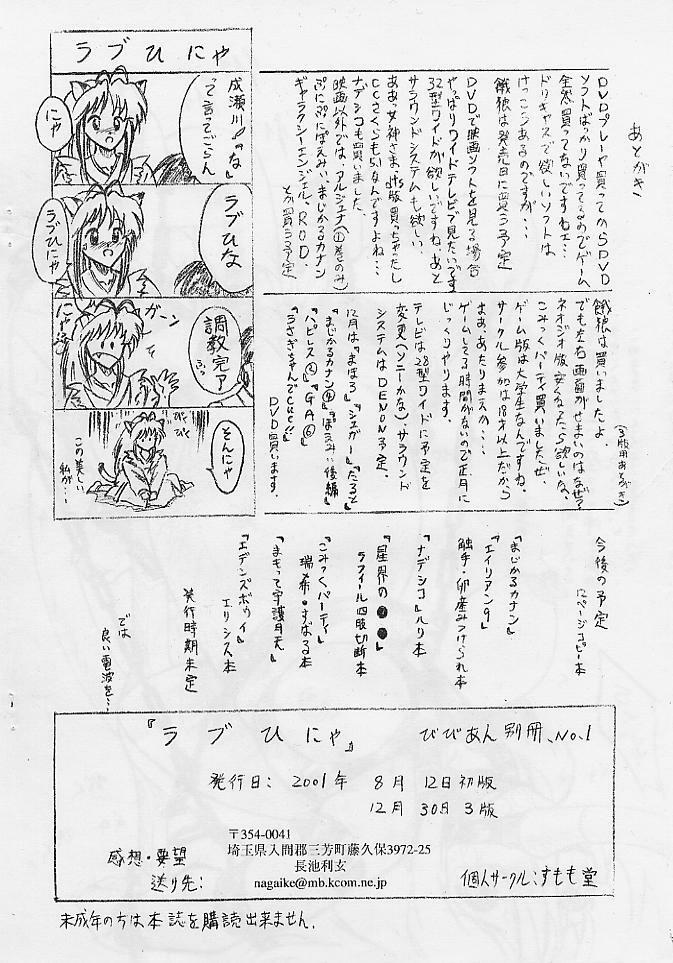 あとがき
DVDプレーヤ買ってからDVD
ソフトばっかり買ってるのでゲーム
全然買ってないですねェ…
ドリキャスで欲しいソフトは
けっこうあるのですが…
餓狼は発売日に買う予定
DVDで映画ソフトを見る場合
やっぱりワイドテレビで見たいです
32型ワイドが欲しいですね。あと
サラウンドシステムも欲しい。
ああっ女神さまっdts版買っちゃったし
CCさくらも5.1なんですよね…
ナデシコも買いました。
映画以外では、アルジェナ(①巻のみ)
ぷにぷにぽえみぃ、まじかるカナン
ギャラクシーエンジェル、R.O.D.
とか買う予定
ラブひにゃ
成瀬川「な」
って言ってごらん
にゃ
ラブひな
ラブひにゃ
調教完了
ふっ
ガーン
にゃ
そんにゃ
びく
びく
この美しい
私が…
(3版用あとがき)
餓狼は買いましたよ。
でも左右画面がせまいのはなぜ?
ネオジオ版安くなったら欲しいな。
こみっくパーティ買いましたぜ。
ゲーム版は大学生なんですね。
サークル参加は18才以上だから
まあ、あたりまえか…
ゲームしてる時間がないので正月に
じっくりやります。
テレビは28型ワイドに予定を
変更(ソニーかな)、サラウンド
システムはDENON予定。
12月は『まほろ』『シュガー』『ちると』
『まじかるカナン④』『ぽえみぃ後編』
『ハピレス②』『GA⑥』
『うさぎちゃんでCue!!』
DVD買います。
今後の予定
12ページコピー本
『まじかるカナン』
『エイリアン9』
触手・卵産みつけられ本
『ナデシコ』ルリ本
『星界の●●』
ラフィール四肢切断本
『こみっくパーティ』
瑞希・すばる本
『まもって守護月天』
『エデンズボゥイ』
エリシス本
発行時期未定
では
良い電波を…
『ラブひにゃ』 びびあん別冊、No.1
発行日: 2001年 8月 12日初版
12月 30日 3版
〒354-0041
埼玉県入間郡三芳町藤久保3972-25
長池利玄
nagaike@mb.kcom.ne.jp
感想・要望
送り先:
個人サークル:すもも堂
未成年の方は本誌を購読出来ません.